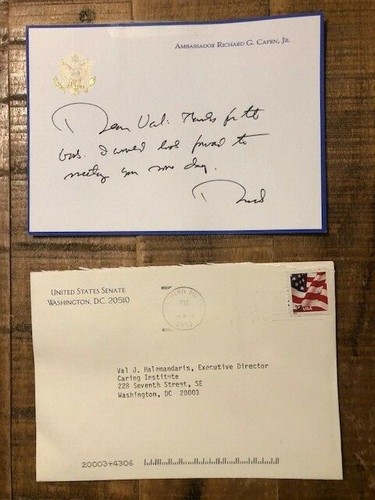 AMBASSADOR RICHARD G. CAPEN, JR.
Dear Val: Thanks for the
book. I would look forward to
meeting you some day.
Dick
UNITED STATES SENATE
WASHINGTON, D.C. 20510
USA
Val J. Halamandaris, Executive Director
Caring Institute
228 Seventh Street, SE
Washington, DC 20003
20003+4306